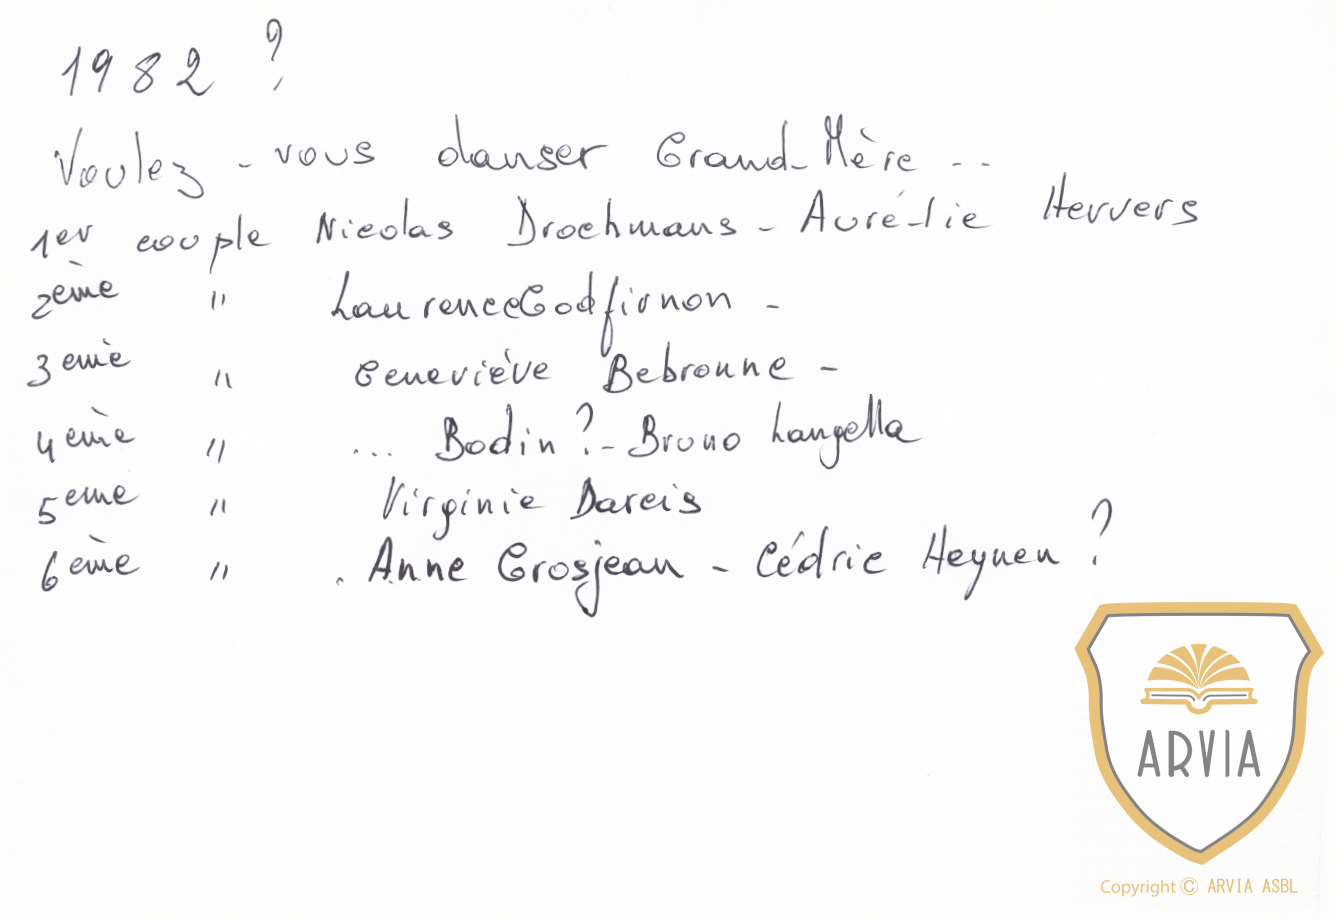 1982 ?
Voulez-vous danser Grand-Mère ..
1er couple Nicolas Drochmans - Aurélie Hervers
2ème " Laurence Godfirnon -
3eme " Geneviève Bebronne -
4ème " ... Bodin ? - Bruno Langella
5eme " Virginie Dareis
6ème " . Anne Grosjean - Cédric Heynen ?
ARVIA
Copyright © ARVIA ASBL